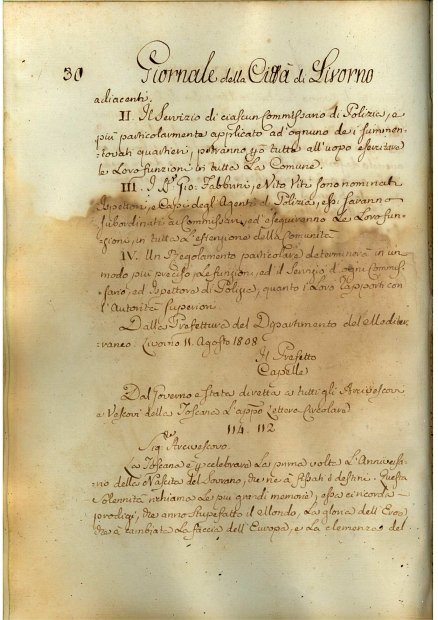 30 Giornale della Città di Livorno
adiacenti.
II. Il Servizio di ciascun Commissario di Polizia, e
più particolarmente applicato ad ognuno de i summen-
tovati quartieri, potranno tutti all'uopo esercitare
le Loro funzioni in tutta La Comune.
III. I Sri Gio: Fabbrini, e Vito Viti sono nominati
Ispettori, e Capi degl'Agenti di Polizia, essi saranno
Subordinati ai Commissari, ed eseguiranno Le Loro fun-
zioni, in tutta L'estenzione della Comunità
IV. Un Regolamento particolare determinerà in un
modo più preciso Le funzioni, ed il Servizio d'ogni Commis-
sario, ed Ispettore di Polizia, quanto i Loro rapporti con
l'Autorità Superiori.
Dalla Prefettura del Dipartimento del Mediter-
raneo. Livorno 11. Agosto 1808.
Il Prefetto
Capelle
Dal Governo è stata diretta a tutti gli Arcivescovi
e Vescovi della Toscana L'appo Lettera Circolare
114. 112
Sigre Arcivescovo.
La Toscana è p celebrare La prima volta L'Anniversa-
rio della Nascita del Sovrano, che ne à fissati i destini. Questa
Solennità richiama le più grandi memorie, essa ci ricorda i
prodigi, che anno Stupefatto il Mondo, La gloria dell'Eroe,
che à cambiata La faccia dell'Europa, e La clemenza del